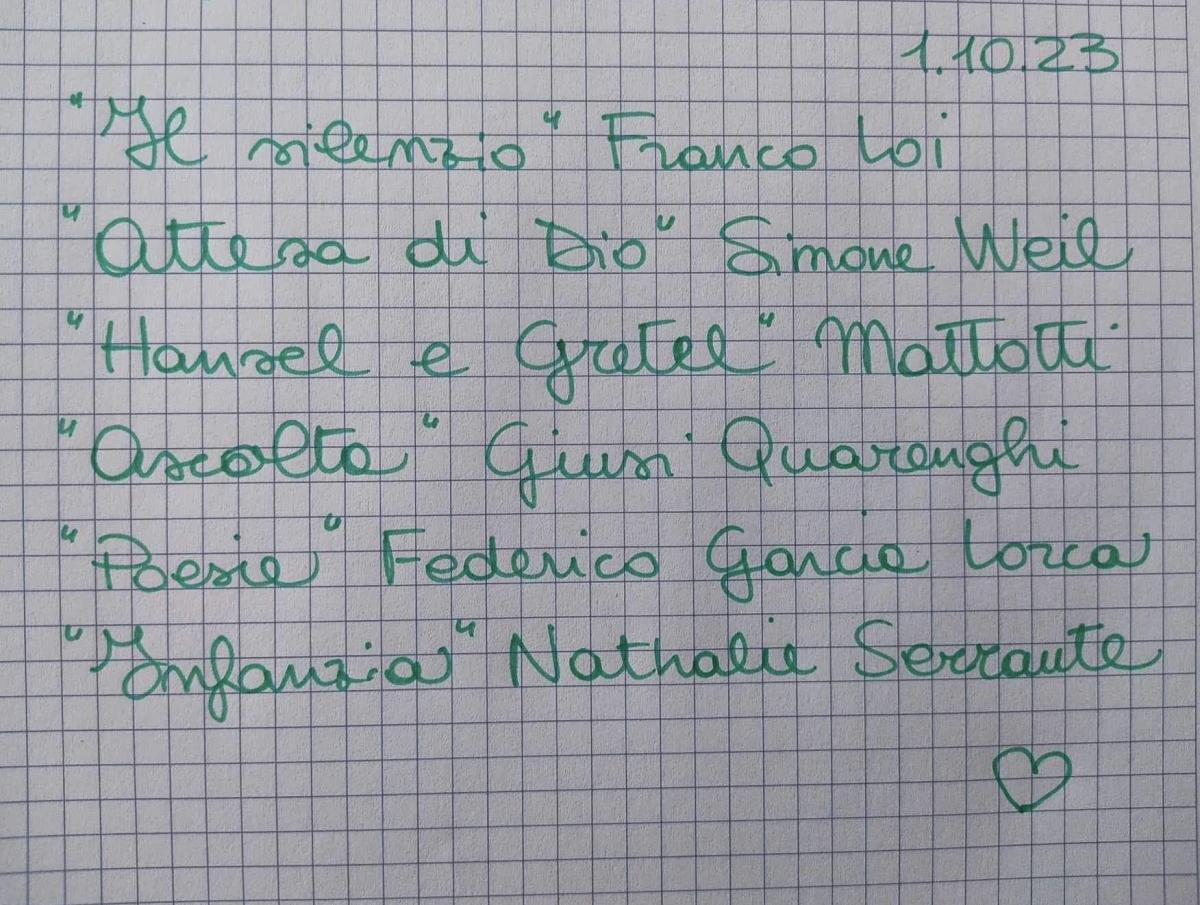 1.10.23
"Il silenzio" Franco Loi
"Attesa di Dio" Simone Weil
"Hansel e Gretel" Mattotti
"Ascolta" Giusi Quarenghi
"Poesie" Federico Garcia Lorca
"Infanzia" Nathalie Serraute